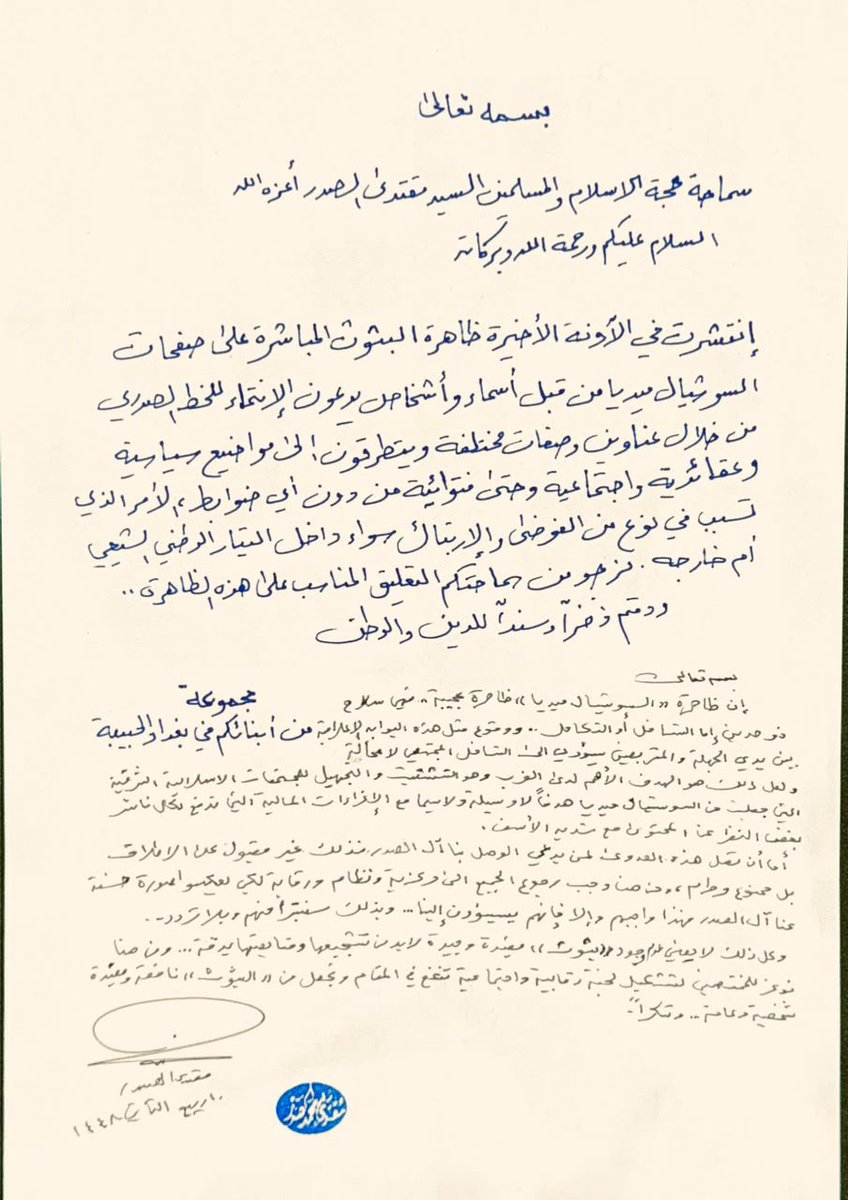 بسمه تعالى
سماحة حجة الاسلام والمسلمين السيد مقتدى الصدر أعزه الله
السلام عليكم ورحمة الله وبركاته
إنتشرت في الآونة الأخيرة ظاهرة البثوث المباشرة على صفحات
السوشيال ميديا من قبل أسماء وأشخاص يدعون الإنتماء للخط الصدري
من خلال عناوين وصفات مختلفة ويتطرقون الى مواضيع سياسية
وعقائدية واجتماعية وحتى فتوائية من دون أي ضوابط، الأمر الذي
تسبب في نوع من الفوضى والإرتباك سواء داخل التيار الوطني الشيعي
أم خارجه. نرجو من سماحتكم التعليق المناسب على هذه الظاهرة ..
ودمتم ذخراً وسنداً للدين والوطن
مجموعة
من أبنائكم في بغداد الحبيبة
بسمه تعالى
إن ظاهرة «السوشيال ميديا» ظاهرة عجيبة.. فهي سلاح
ذو حدين إما التسافل أو التكامل .. ووقوع مثل هذه البوابة الإعلامية
بين يدي الجهلة والمتربصين سيؤدي الى التسافل المجتمعي لا محالة
ولعل ذلك هو الهدف الأهم لدى الغرب وهو التشتيت والتجهيل للمجتمعات الاسلامية الشرقية
التي جعلت من السوشيال ميديا هدفاً لا وسيلة ولاسيما مع الإغراءات المالية التي تدفع لكل ناشر
بغض النظر عن المحتوى مع شديد الأسف.
أما أن تنقل هذه العدوى لمن يدعي الوصل بنا آل الصدر فذلك غير مقبول على الاطلاق
بل ممنوع وحرام، ومن هنا وجب رجوع الجميع الى مركزية ونظام ورقابة لكي يعكسوا صورة حسنة
عنا آل الصدر فهذا واجبهم وإلا فإنهم يسيؤون إلينا... وبذلك سنتبرأ منهم وبلا تردد..
وعل ذلك لا يعني عدم وجود «بثوث» مفيدة وجيدة لابد من تشجيعها ومتابعتها بدقة... ومن هنا
نوعز للمختصين لتشكيل لجنة رقابية واجتماعية تنفع في المقام وتجعل من «البثوث» نافعة ومفيدة
شخصية وعامة.. وشكراً.
مقتدى الصدر
ربيع الثاني ١٤٤٨